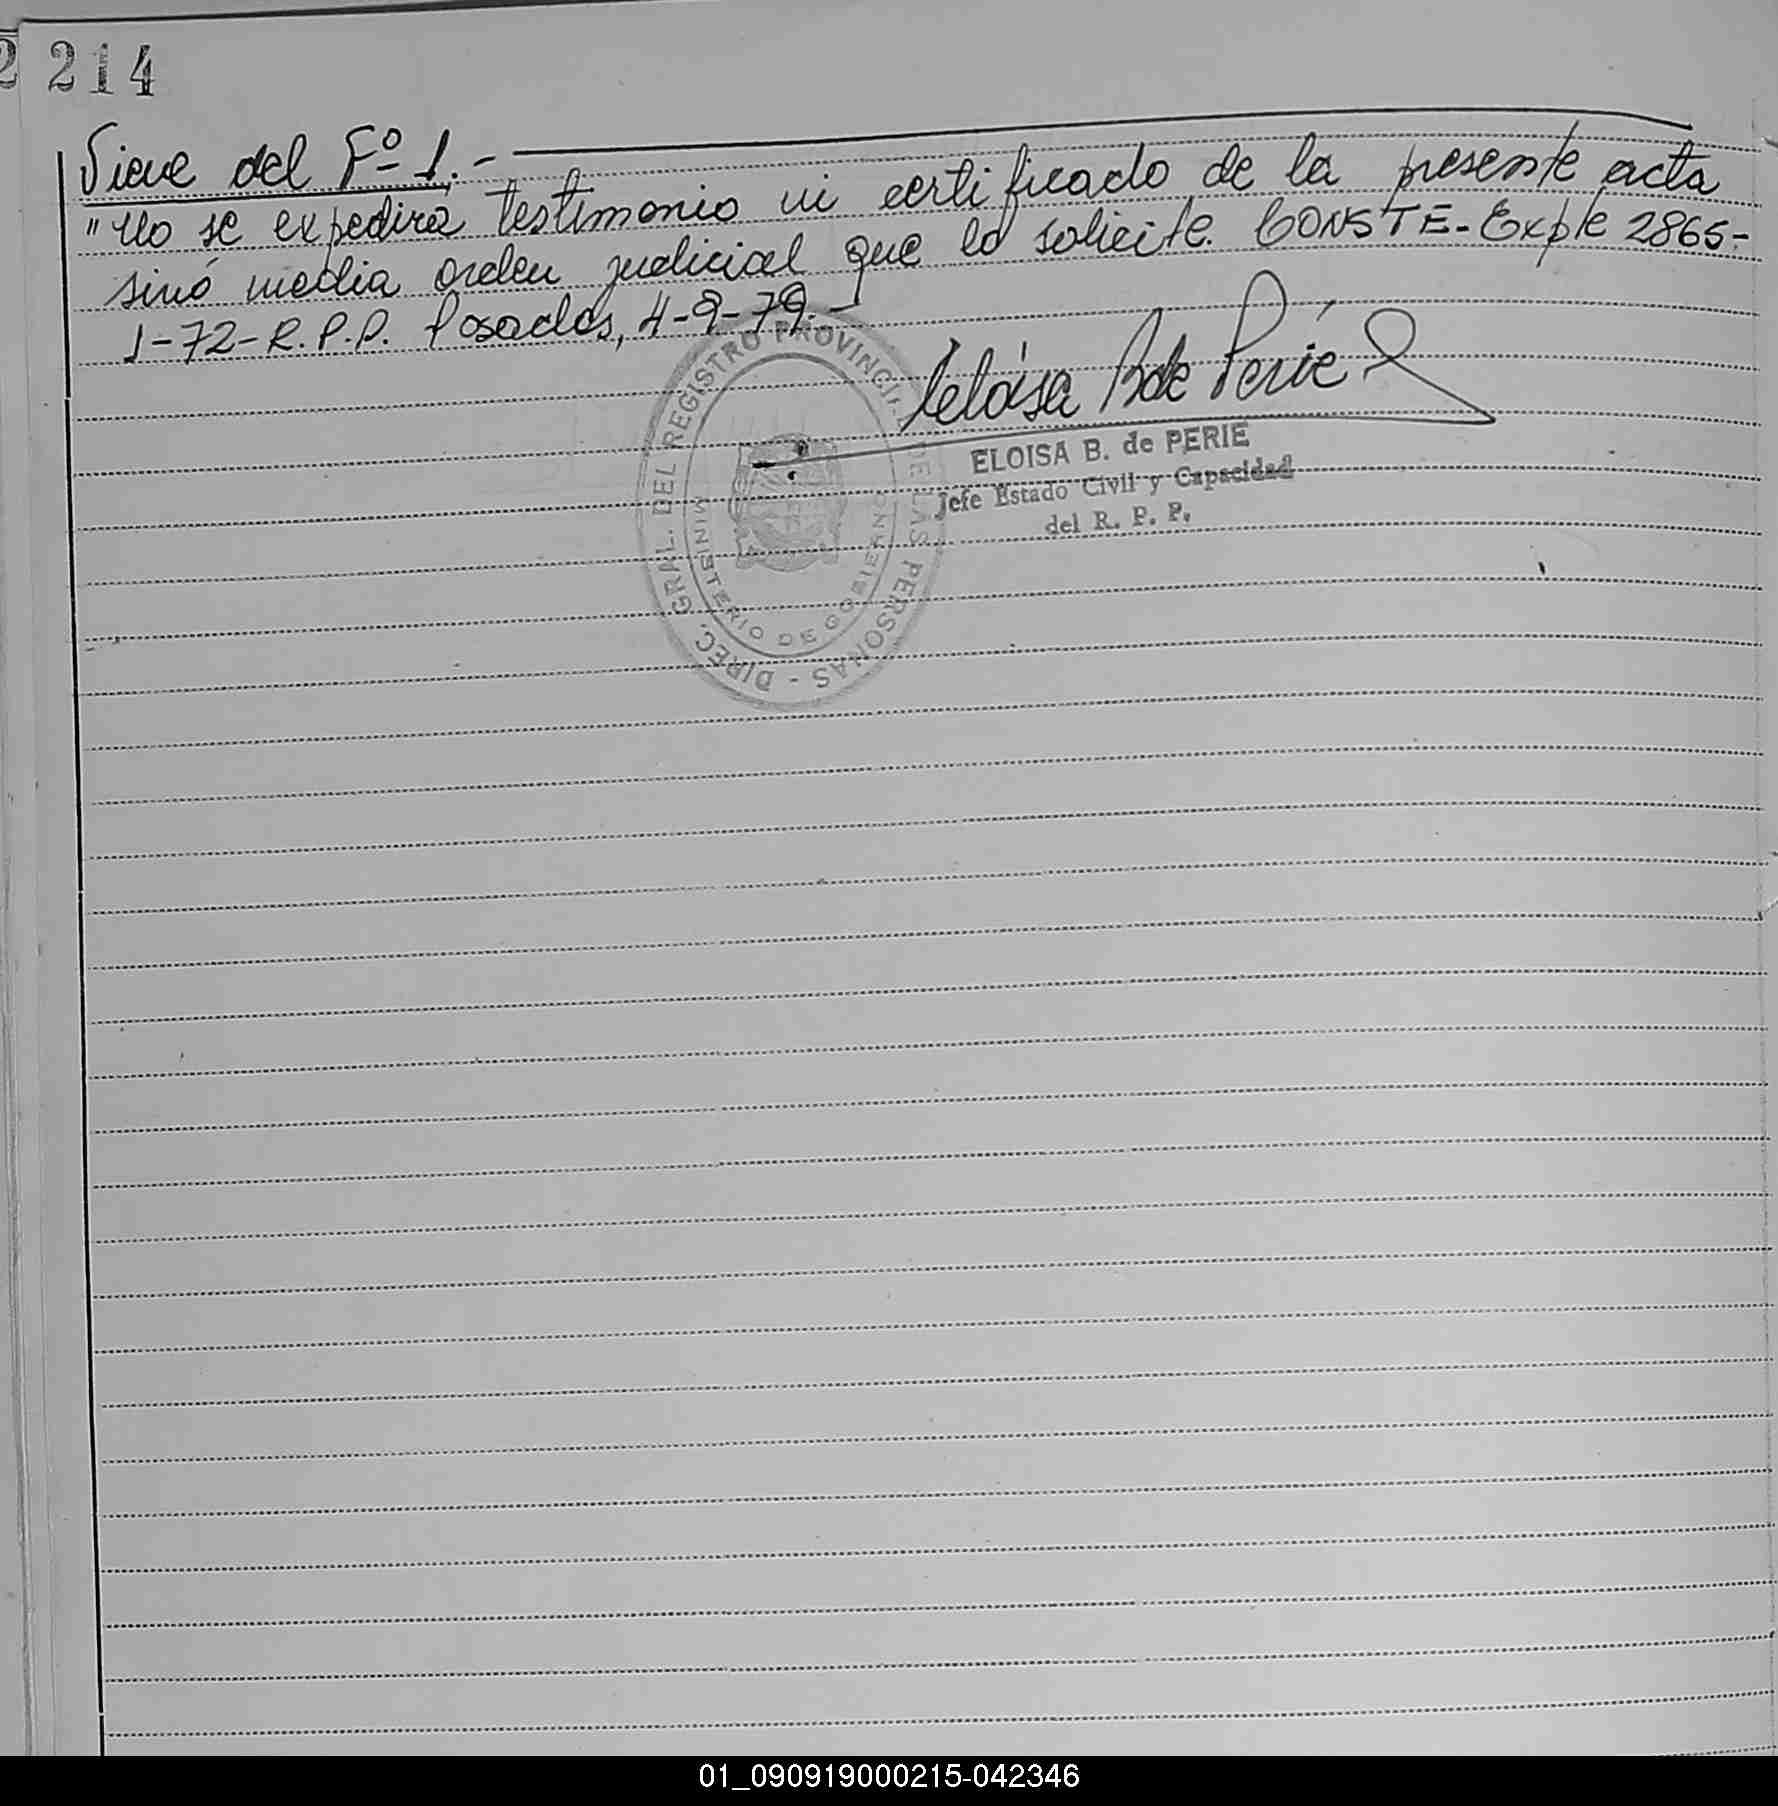 2 214
Viene del Fº 1.-
"No se expedirá testimonio ni certificado de la presente acta
sinó media orden judicial que lo solicite. CONSTE.- Expte 2865-
1-72-R.P.P. Posadas, 4-9-79.-
Eloísa B de Perié
ELOISA B. de PERIE
Jefe Estado Civil y Capacidad
del R. P. P.
DIREC. GRAL. DEL REGISTRO PROVINCIAL DE LAS PERSONAS -
MINISTERIO DE GOBIERNO
01_090919000215-042346